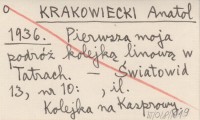 KRAKOWIECKI Anatol
1936. Pierwsza moja
podróż kolejką linową w
Tatrach. – Światowid
13, nr 10: , il.
Kolejka na Kasprowy